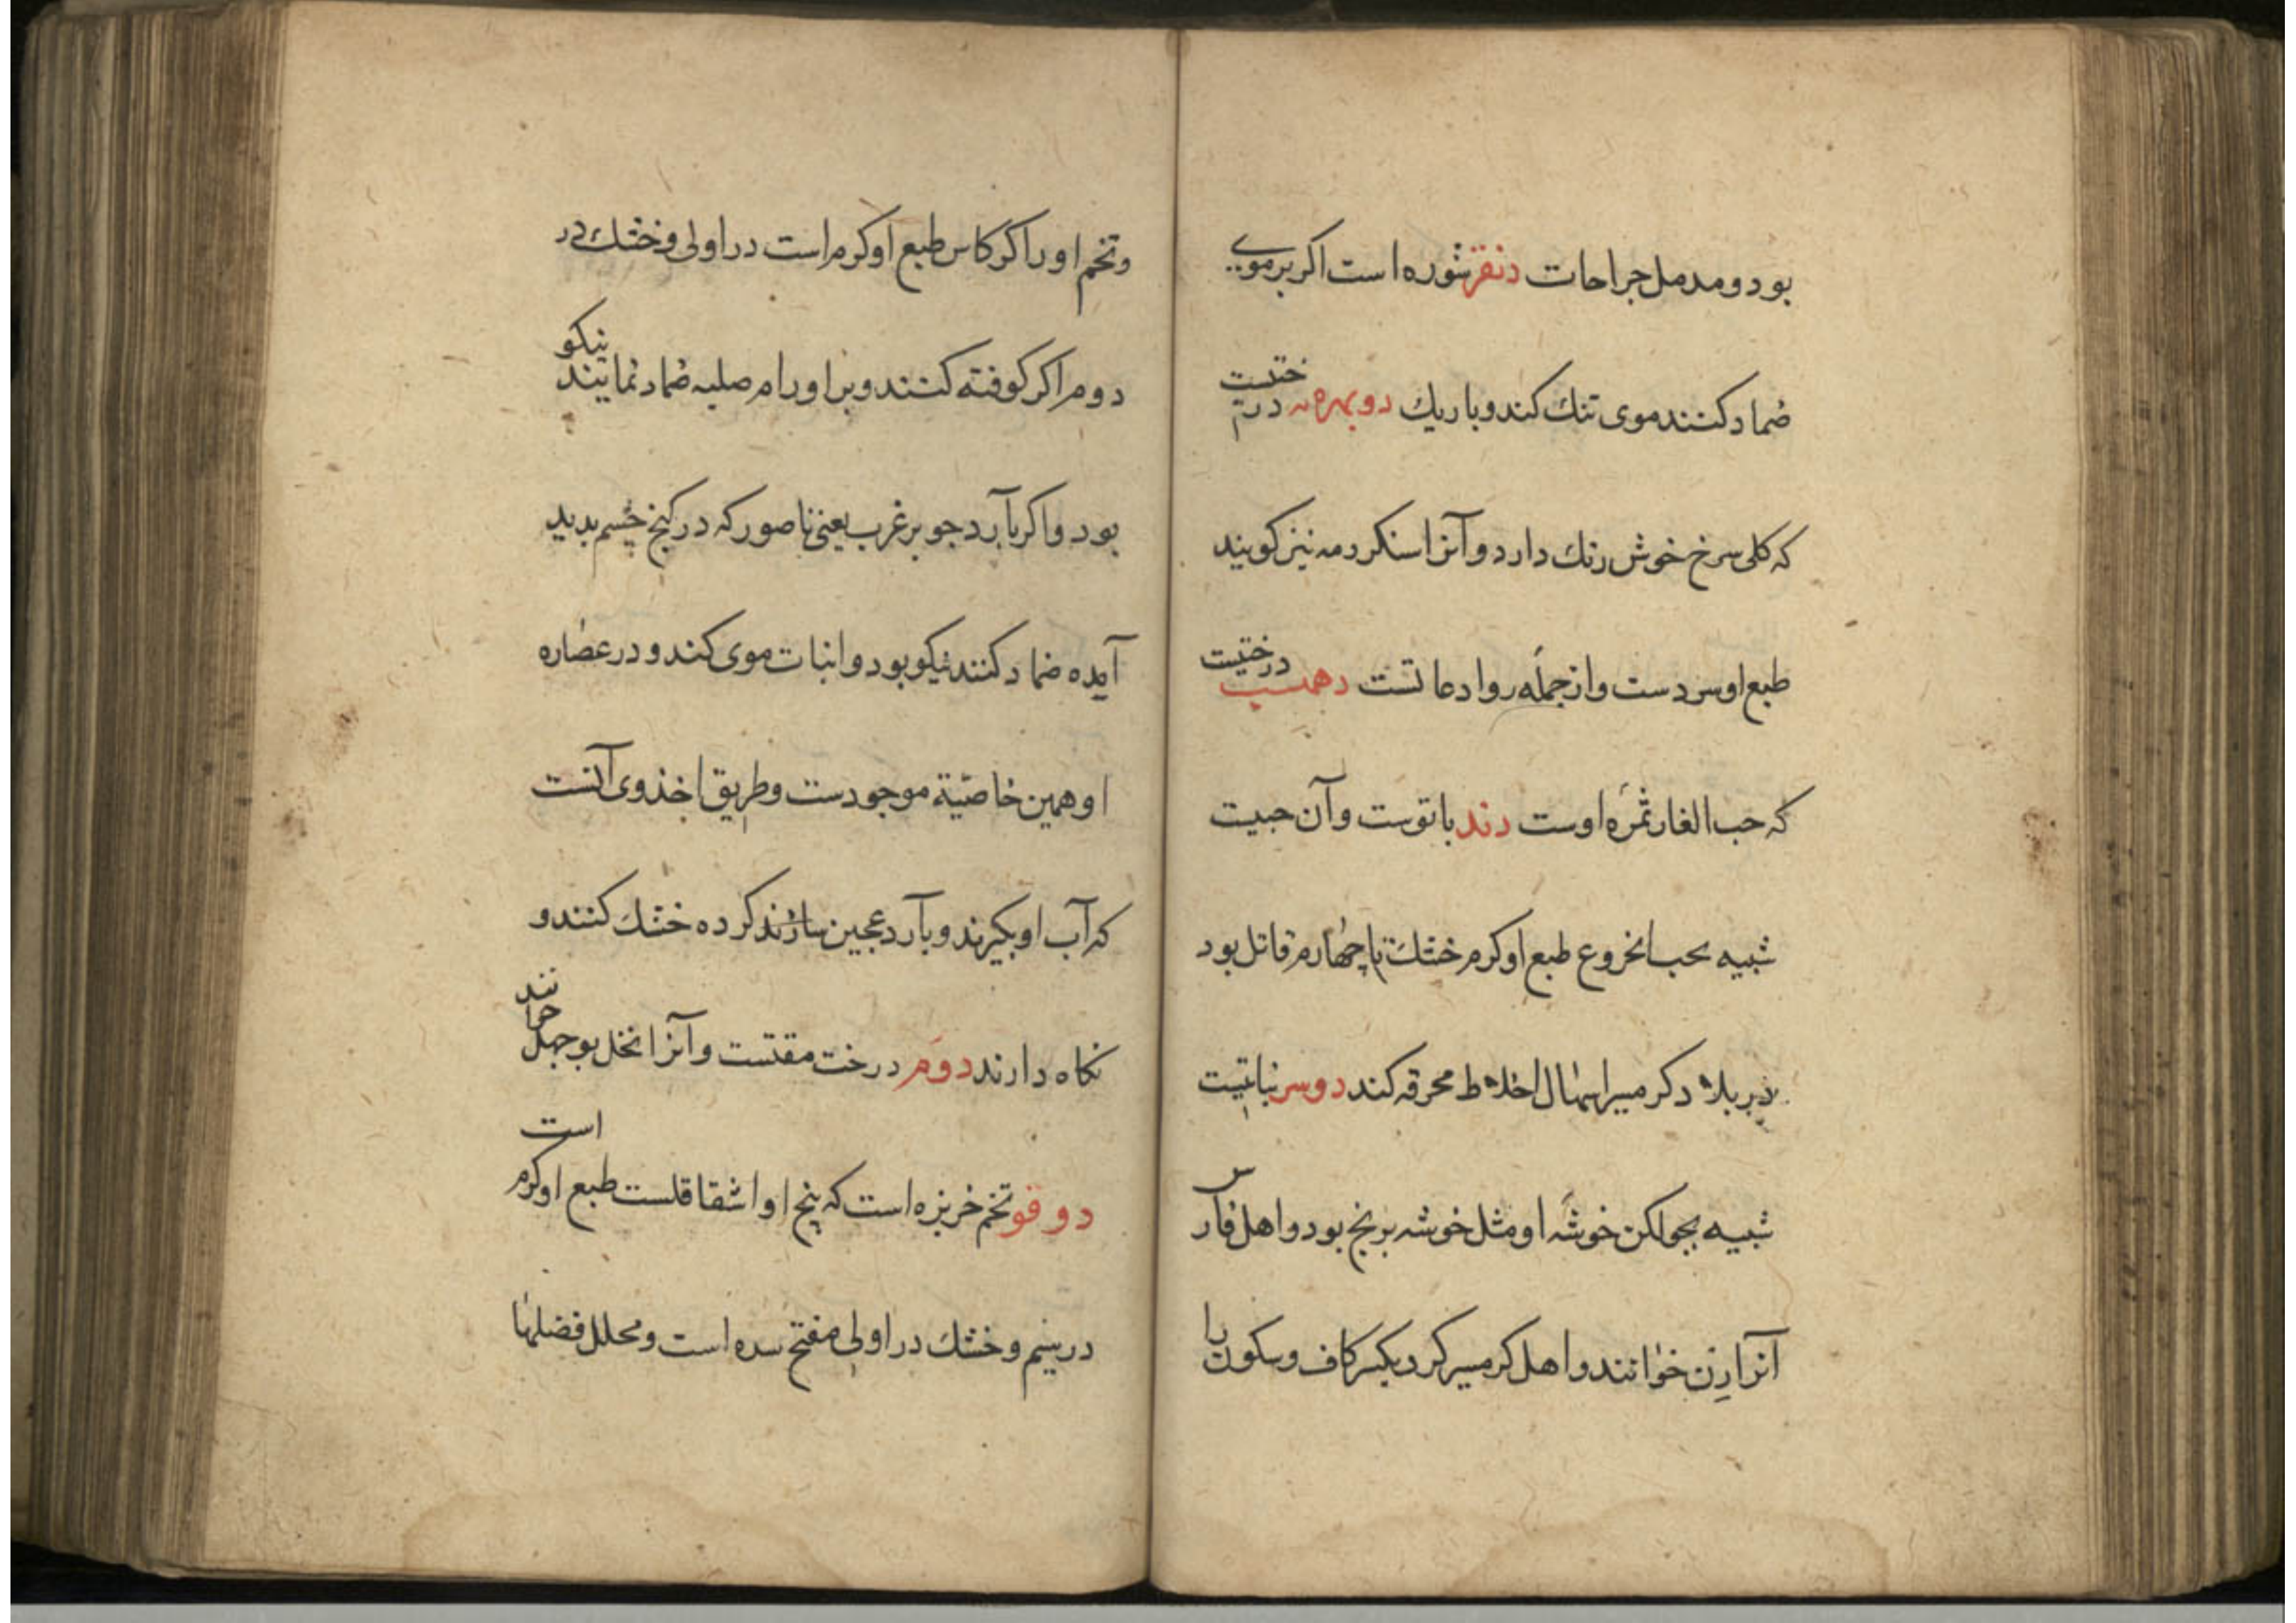 بود ومدمل جراحات دنقر شوره است اکر بر موی
ضماد کنند موی تنک کند و باریک دوبهره درختیست
که کلی سرخ خوش رنک دارد و آنرا سنکر دمه نیز کویند
طبع او سردست و از جمله روادعاتست دهمست درختیست
که حب الغار ثمره اوست دند باتوست و آن حبیت
شبیه بحب الخروع طبع او کرم خشک تا چهارم قاتل بود
در بلاد کرمسیر اسهال اخلاط محرقه کند دوسر نباتیست
شبیه بجو لکن خوشه او مثل خوشه برنج بود و اهل فارس
آنرا رن خوانند و اهل کرمسیر کرد بکسر کاف و سکون را
وتخم او را کرکاس طبع او کرم است در اولی و خشک در
دوم اکر کوفته کنند و بر اورام صلبه ضماد نمایند نیکو
بود و اکر با آرد جو بر غرب یعنی ناصور که در کنج چشم بدید
آمده ضماد کنند نیکو بود و انبات موی کند و در عصاره
او همین خاصیة موجودست و طریق اخذ وی آنست
که آب او بکیرند و با آرد عجین سازند کرده خشک کنند و
نکاه دارند دوم درخت مقلست و آنرا نخل بوجهل خوانند
دوقو تخم خربزه است که بیخ او اشقاقلست طبع او کرم است
در سیم و خشک در اولی مفتح سده است و محلل فضلها